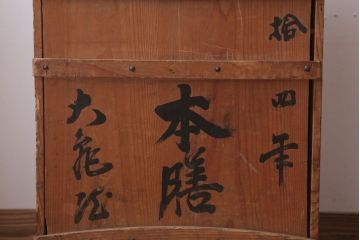 拾四年
本膳
大亀